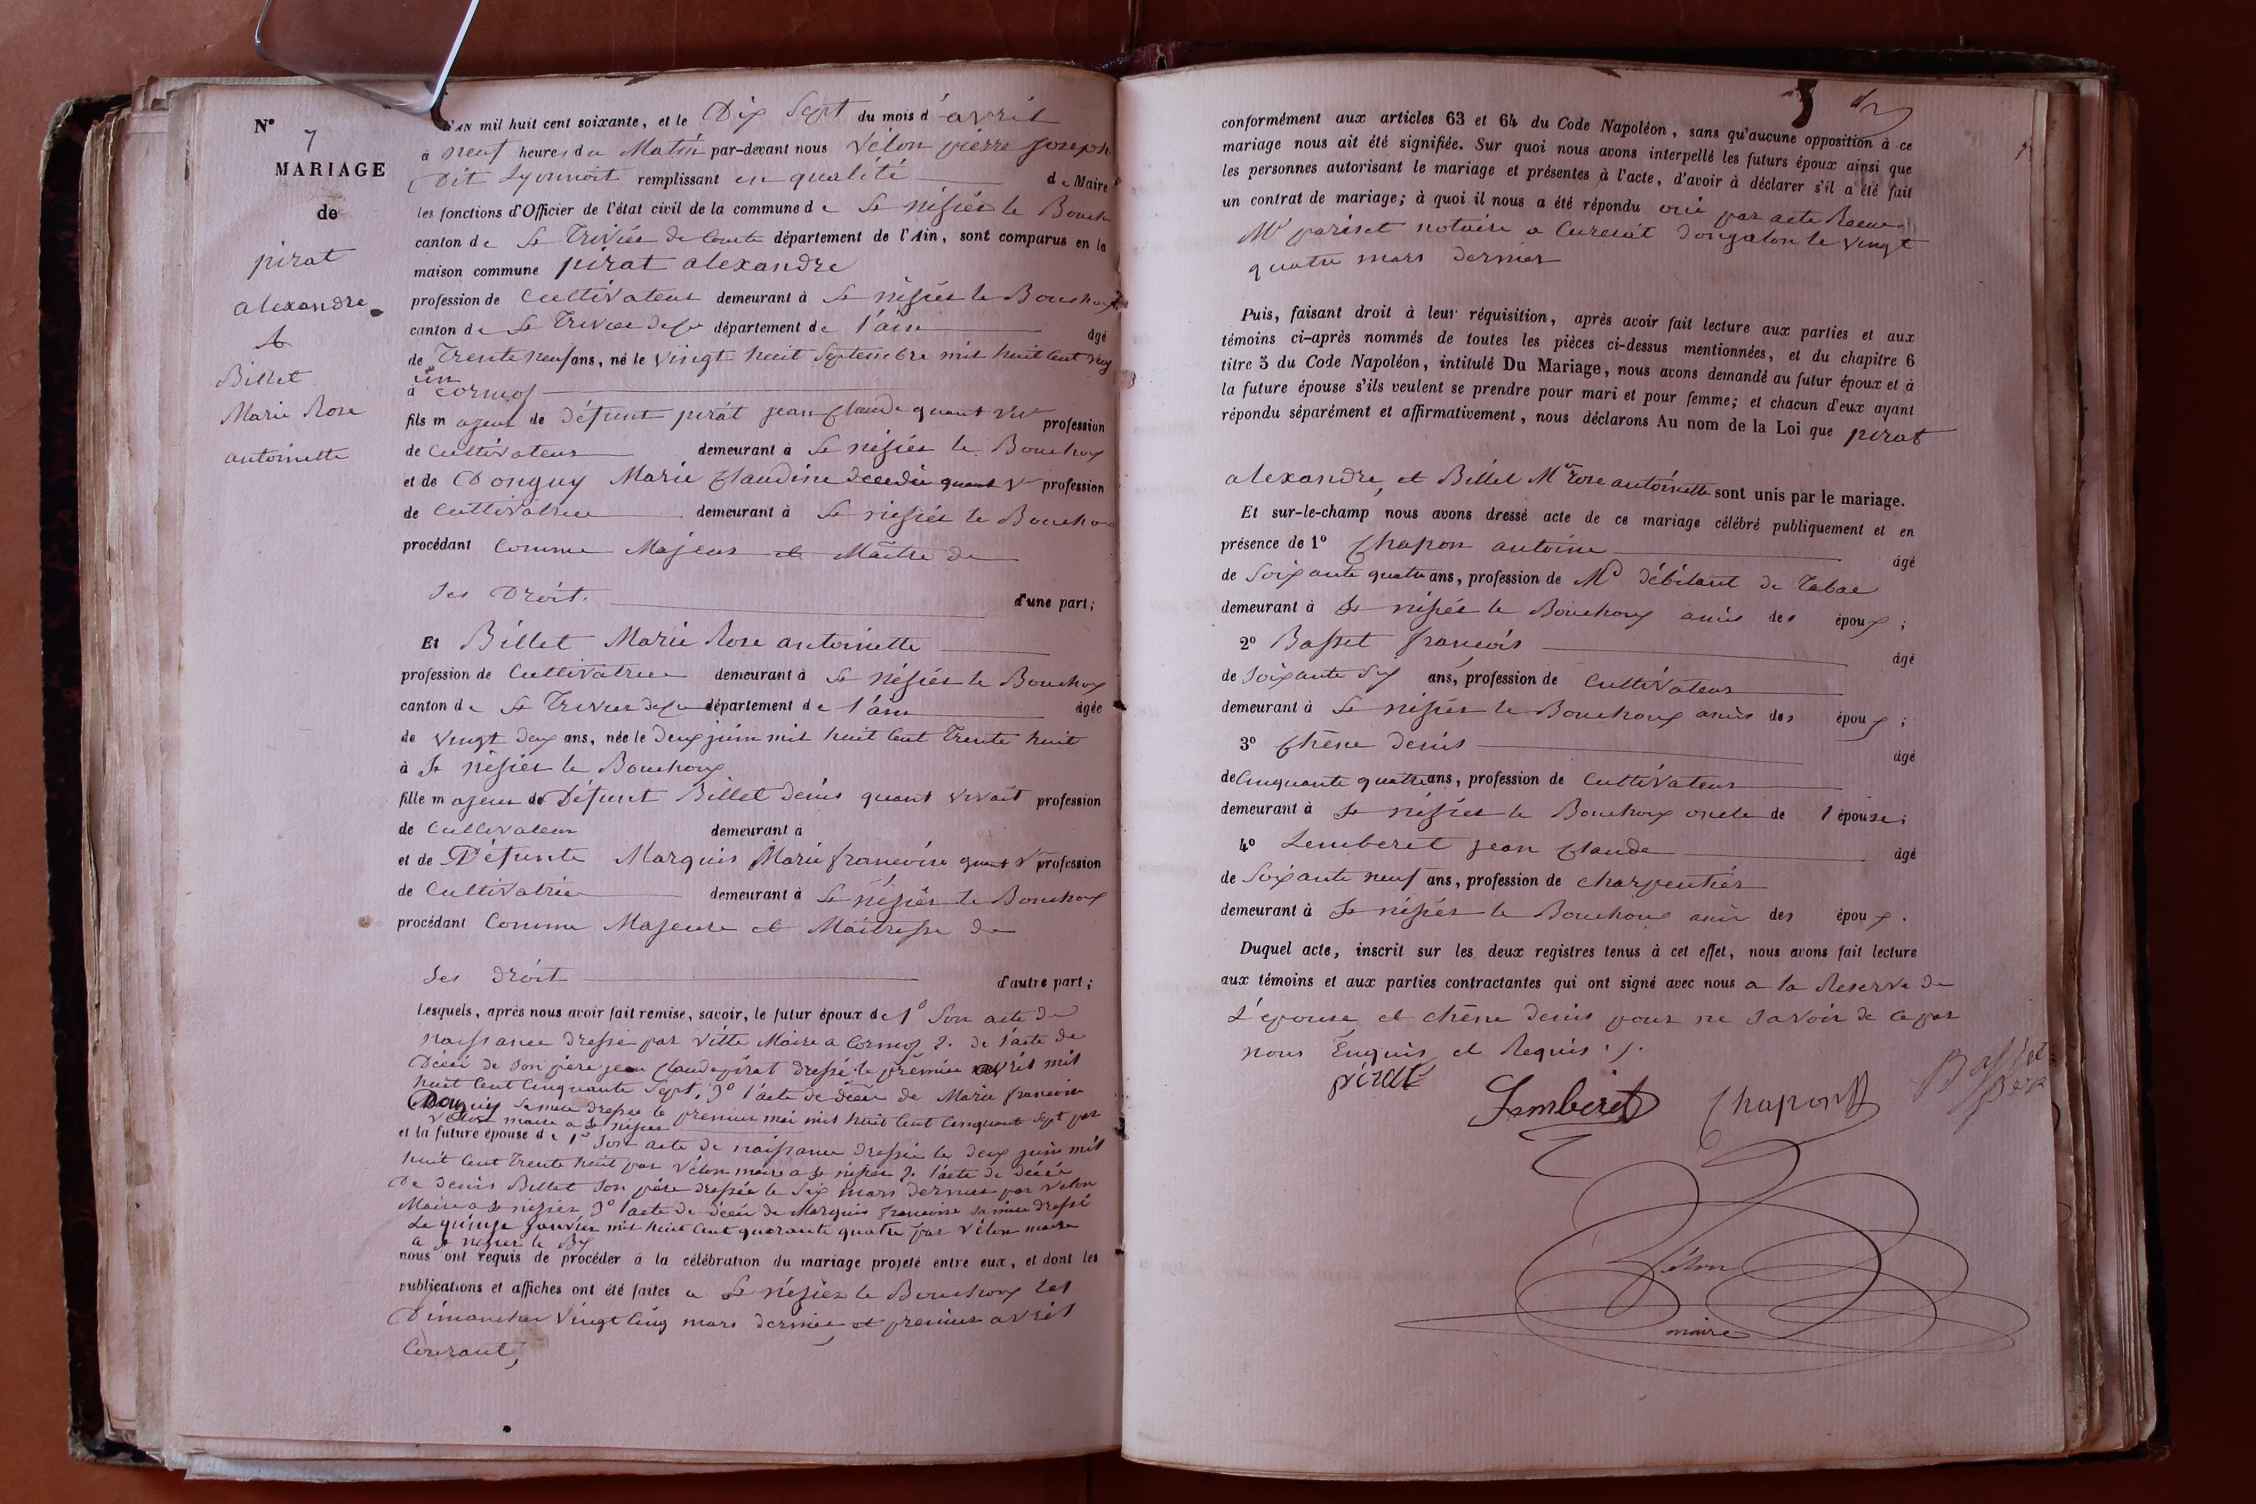 N° 7
MARIAGE
de
pirat
alexandre
&
Billet
Marie Rose
antoinette
L'AN mil huit cent soixante, et le Dix Sept du mois d'avril
à neuf heures du Matin par-devant nous Vélon pierre Joseph
Dit Lyonnoit remplissant en qualité de Maire
les fonctions d'Officier de l'état civil de la commune de St nisier le Bouch
canton de St Trivier de Courte département de l'Ain, sont comparus en la
maison commune pirat alexandre
profession de Cultivateur demeurant à St nisier le Bouchoux
canton de St Trivier de Ce département de l'ain âgé
de Trente neuf ans, né le vingt huit Septembre mil huit Cent vingt
un
à Cormoz
fils majeur de défunt pirat jean Claude quant Vt profession
de Cultivateur demeurant à St nisier le Bouchoux
et de Donguy Marie Claudine décédée quant Vt profession
de Cultivatrice demeurant à St nisier le Bouchou
procédant Comme Majeur et Maître de
Ses Droit. d'une part;
Et Billet Marie Rose antoinette
profession de Cultivatrice demeurant à St nisier le Bouchoux
canton de St Trivier de Ce département de l'ain âgée
de vingt deux ans, née le deux juin mil huit Cent Trente huit
à St nisier le Bouchoux
fille majeure de Défunt Billet denis quant vivait profession
de Cultivateur demeurant à
et de Défunte Marquis Marie francoise quant Vt profession
de Cultivatrice demeurant à St nisier le Bouchoux
procédant Comme Majeure et Maitresse de
Ses droit d'autre part;
Lesquels, après nous avoir fait remise, savoir, le futur époux de 1° Son acte de
naissance dressé par Vitte Maire a Cormoz 2. de l'acte de
Décès de Son père jean Claude pirat dressé le premier avril mil
huit Cent Cinquante Sept, 3° l'acte de décès de Marie francoise
Donguy sa mere dressée le premier mai mil huit Cent Cinquante Sept par
Vélon maire a St nisier
et la future épouse de 1° Son acte de naissance dressée le deux juin mil
huit Cent Trente huit par Vélon maire a St nisier 2. l'acte de décès
De denis Billet Son père dressée le Six mars dernier par Vélon
Maire a St nisier 3° l'acte de décès de Marquis francoise Sa mère dressé
Le quinze Janvier mil huit Cent quarante quatre par Vélon maire
a St nisier le Bx
nous ont requis de procéder à la célébration du mariage projeté entre eux, et dont les
publications et affiches ont été faites a St nisier le Bouchoux les
Dimanches Vingt Cinq mars dernier et premier avril
Courant,
conformément aux articles 63 et 64 du Code Napoléon, sans qu'aucune opposition à ce
mariage nous ait été signifiée. Sur quoi nous avons interpellé les futurs époux ainsi que
les personnes autorisant le mariage et présentes à l'acte, d'avoir à déclarer s'il a été fait
un contrat de mariage; à quoi il nous a été répondu oui par acte Recu
Mr pariset notaire a Curciat dongalon le vingt
quatre mars dernier
Puis, faisant droit à leur réquisition, après avoir fait lecture aux parties et aux
témoins ci-après nommés de toutes les pièces ci-dessus mentionnées, et du chapitre 6
titre 5 du Code Napoléon, intitulé Du Mariage, nous avons demandé au futur époux et à
la future épouse s'ils veulent se prendre pour mari et pour femme; et chacun d'eux ayant
répondu séparément et affirmativement, nous déclarons Au nom de la Loi que pirat
alexandre, et Billet Mie rose antoinette sont unis par le mariage.
Et sur-le-champ nous avons dressé acte de ce mariage célébré publiquement et en
présence de 1° Chapon antoine âgé
de Soixante quatre ans, profession de Md débitant de Tabac
demeurant à St nisier le Bouchoux amis des époux;
2° Basset francois âgé
de Soixante Six ans, profession de Cultivateur
demeurant à St nisier le Bouchoux amis des époux;
3° Chêne denis âgé
de Cinquante quatre ans, profession de Cultivateur
demeurant à St nisier le Bouchoux oncle de l'épouse;
4° Lemberet jean Claude âgé
de Soixante neuf ans, profession de charpentier
demeurant à St nisier le Bouchoux amis des époux.
Duquel acte, inscrit sur les deux registres tenus à cet effet, nous avons fait lecture
aux témoins et aux parties contractantes qui ont signé avec nous a la Reserve de
L'épouse et chêne denis pour ne savoir de ce par
nous Enquis et Requis ./.
pirat
Lemberet
Chapont
Basset
père
Vélon
maire